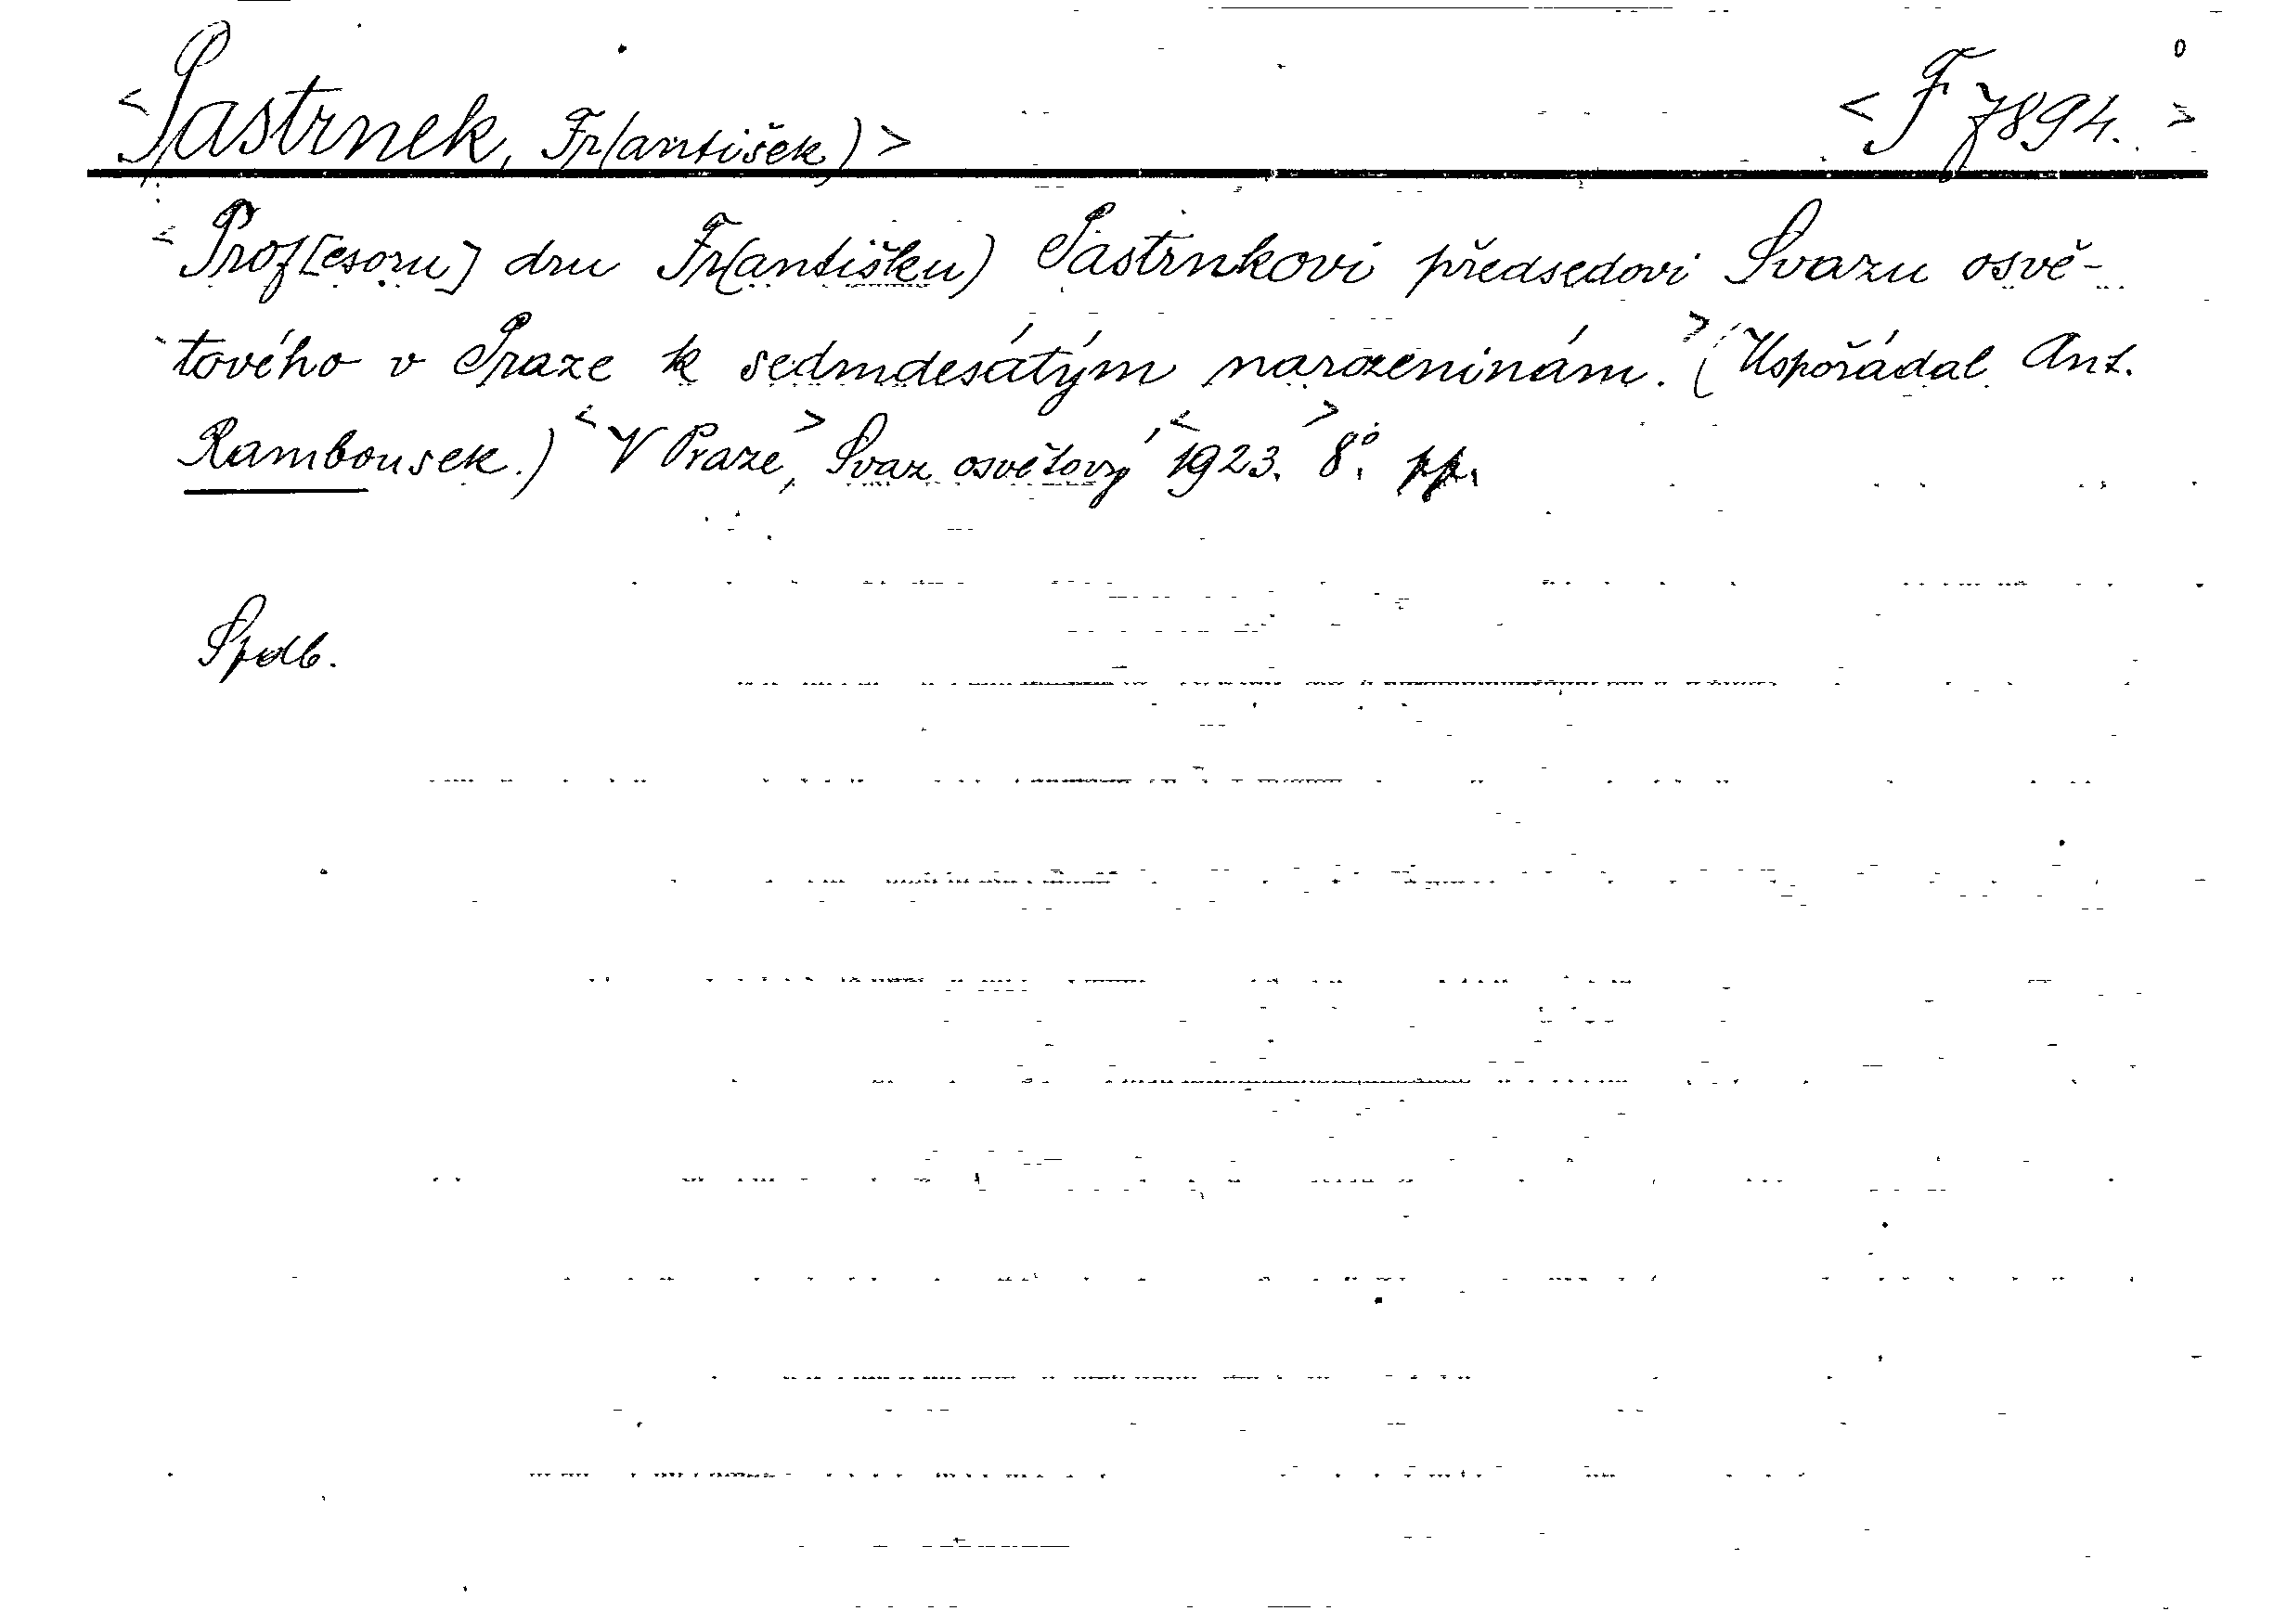 <Pastrnek, Fr(antišek)> <F 7894.>
<Prof[esoru] dru Fr(antišku) Pastrnkovi předsedovi Svazu osvě-
tového v Praze k sedmdesátým narozeninám.> (Uspořádal Ant.
Rambousek.) <V Praze,> Svaz osvětový, <1923.> 8°. pp.
Spdb.